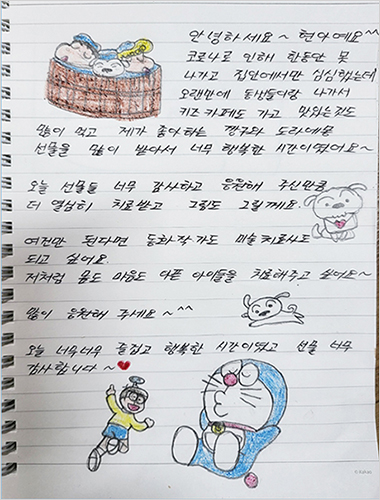 안녕하세요~ 현아예요^^
코로나로 인해 한동안 못
나가고 집안에서만 심심했는데
오랜만에 동생들이랑 나가서
키즈카페도 가고 맛있는것도
많이 먹고 제가 좋아하는 짱구와 도라에몽
선물을 많이 받아서 너무 행복한 시간이였어요~
오늘 선물들 너무 감사하고 응원해 주신만큼
더 열심히 치료받고 그림도 그릴께요.
여건만 된다면 동화작가도 미술치료사도
되고 싶어요.
저처럼 몸도 마음도 아픈 아이들을 치료해주고 싶어요~
많이 응원해 주세요~^^
오늘 너무너무 즐겁고 행복한 시간이였고 선물 너무
감사합니다~